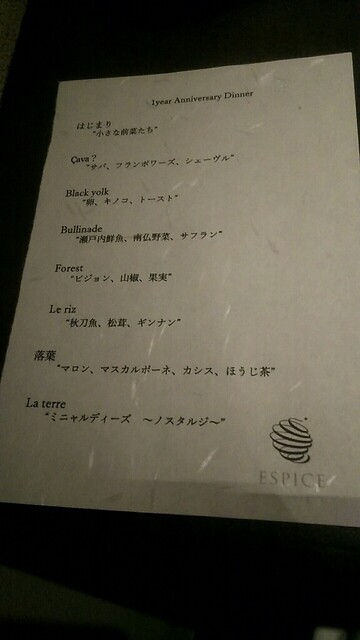 1year Anniversary Dinner
はじまり
"小さな前菜たち"
Çava ?
"サバ、フランボワーズ、シェーヴル"
Black yolk
"卵、キノコ、トースト"
Bullinade
"瀬戸内鮮魚、南仏野菜、サフラン"
Forest
"ピジョン、山椒、果実"
Le riz
"秋刀魚、松茸、ギンナン"
落葉
"マロン、マスカルポーネ、カシス、ほうじ茶"
La terre
"ミニャルディーズ　～ノスタルジ～"
ESPICE